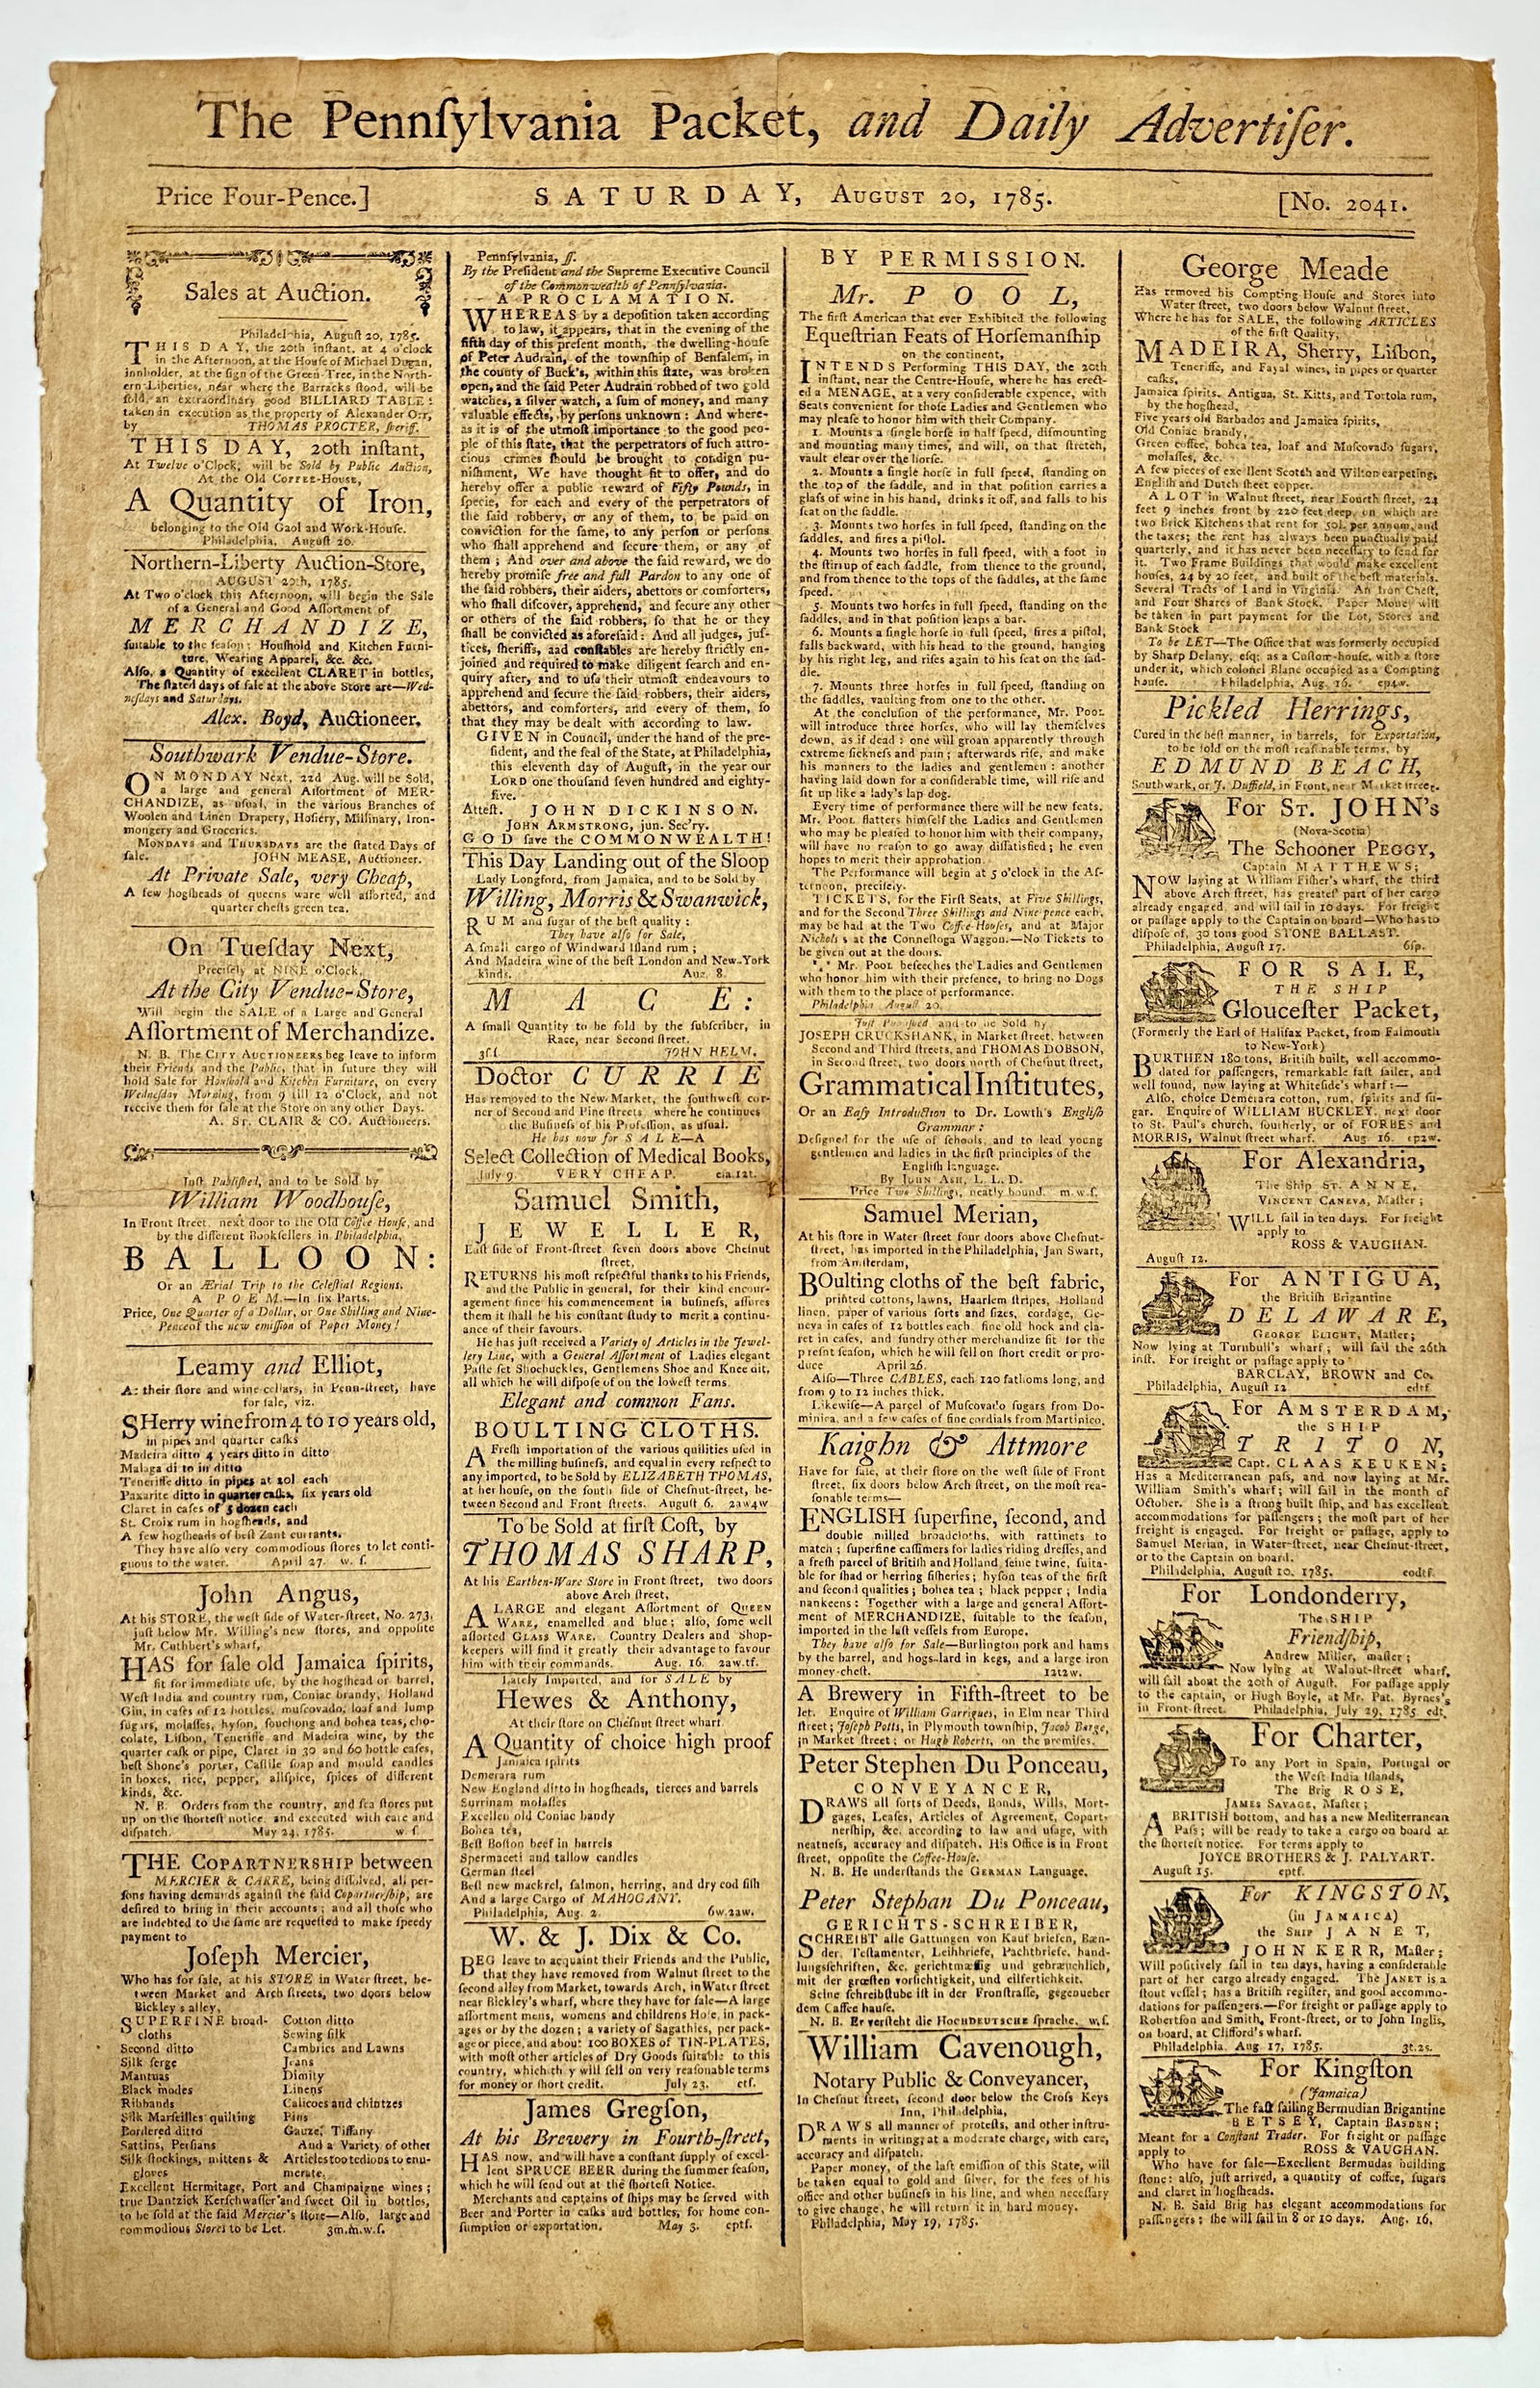 The Pennſylvania Packet, and Daily Advertiſer.
Price Four-Pence.]
SATURDAY, August 20, 1785.
[No. 2041.
Sales at Auction.
Philadelphia, Auguſt 20, 1785.
THIS DAY, the 20th inſtant, at 4 o'clock
in the Afternoon, at the Houſe of Michael Dugan,
innholder, at the ſign of the Green Tree, in the North-
ern-Liberties, near where the Barracks ſtood, will be
ſold, an extraordinary good BILLIARD TABLE:
taken in execution as the property of Alexander Orr,
by THOMAS PROCTER, ſheriff.
THIS DAY, 20th inſtant,
At Twelve o'Clock, will be Sold by Public Auction,
At the Old Coffee-House,
A Quantity of Iron,
belonging to the Old Gaol and Work-Houſe.
Philadelphia, Auguſt 20.
Northern-Liberty Auction-Store,
AUGUST 20th, 1785.
At Two o'clock this Afternoon, will begin the Sale
of a General and Good Aſſortment of
MERCHANDIZE,
ſuitable to the ſeaſon: Houſhold and Kitchen Furni-
ture, Wearing Apparel, &c. &c.
Alſo, a Quantity of excellent CLARET in bottles,
The ſtated days of ſale at the above Store are—Wed-
neſdays and Saturdays.
Alex. Boyd, Auctioneer.
Southwark Vendue-Store.
ON MONDAY Next, 22d Aug. will be Sold,
a large and general Aſſortment of MER-
CHANDIZE, as uſual, in the various Branches of
Woolen and Linen Drapery, Hoſiery, Millinary, Iron-
mongery and Groceries.
Mondays and Thursdays are the ſtated Days of
ſale. JOHN MEASE, Auctioneer.
At Private Sale, very Cheap,
A few hogſheads of queens ware well aſſorted, and
quarter cheſts green tea.
On Tueſday Next,
Preciſely at NINE o'Clock,
At the City Vendue-Store,
Will begin the SALE of a Large and General
Aſſortment of Merchandize.
N. B. The City Auctioneers beg leave to inform
their Friends and the Public, that in future they will
hold Sale for Houſhold and Kitchen Furniture, on every
Wedneſday Morning, from 9 till 12 o'Clock, and not
receive them for ſale at the Store on any other Days.
A. St. CLAIR & CO. Auctioneers.
Juſt Publiſhed, and to be Sold by
William Woodhouſe,
In Front ſtreet, next door to the Old Coffee Houſe, and
by the different Bookſellers in Philadelphia,
BALLOON:
Or an Ærial Trip to the Celeſtial Regions.
A POEM.—In ſix Parts.
Price, One Quarter of a Dollar, or One Shilling and Nine-
Pence of the new emiſſion of Paper Money!
Leamy and Elliot,
At their ſtore and wine-cellars, in Penn-ſtreet, have
for ſale, viz.
SHerry wine from 4 to 10 years old,
in pipes and quarter caſks
Madeira ditto 4 years ditto in ditto
Malaga ditto in ditto
Teneriffe ditto in pipes at 20l each
Paxarite ditto in quarter caſks, ſix years old
Claret in caſes of 3 dozen each
St. Croix rum in hogſheads, and
A few hogſheads of beſt Zant currants.
They have alſo very commodious ſtores to let conti-
guous to the water. April 27. w. ſ.
John Angus,
At his STORE, the weſt ſide of Water-ſtreet, No. 273,
juſt below Mr. Willing's new ſtores, and oppoſite
Mr. Cuthbert's wharf,
HAS for ſale old Jamaica ſpirits,
fit for immediate uſe, by the hogſhead or barrel,
Weſt India and country rum, Coniac brandy, Holland
Gin, in caſes of 12 bottles, muſcovado, loaf and lump
ſugars, molaſſes, hyſon, ſouchong and bohea teas, cho-
colate, Liſbon, Teneriffe and Madeira wine, by the
quarter caſk or pipe, Claret in 30 and 60 bottle caſes,
beſt Shone's porter, Caſtile ſoap and mould candles
in boxes, rice, pepper, allſpice, ſpices of different
kinds, &c.
N. B. Orders from the country, and ſea ſtores put
up on the ſhorteſt notice, and executed with care and
diſpatch. May 24, 1785. w ſ.
THE Copartnership between
MERCIER & CARRE, being diſſolved, all per-
ſons having demands againſt the ſaid Copartnerſhip, are
deſired to bring in their accounts; and all thoſe who
are indebted to the ſame are requeſted to make ſpeedy
payment to
Joſeph Mercier,
Who has for ſale, at his STORE in Water ſtreet, be-
tween Market and Arch ſtreets, two doors below
Bickley's alley,
SUPERFINE broad-
cloths
Second ditto
Silk ſerge
Mantuas
Black modes
Ribbands
Silk Marſeilles quilting
Bordered ditto
Sattins, Perſians
Silk ſtockings, mittens &
gloves
Cotton ditto
Sewing ſilk
Cambrics and Lawns
Jeans
Dimity
Linens
Calicoes and chintzes
Pins
Gauze, Tiffany
And a Variety of other
Articles too tedious to enu-
merate,
Excellent Hermitage, Port and Champaigne wines;
true Dantzick Kerſchwaſſer and ſweet Oil in bottles,
to be ſold at the ſaid Mercier's ſtore—Alſo, large and
commodious Stores to be Let. 3m.m.w.ſ.
Pennſylvania, ſſ.
By the Preſident and the Supreme Executive Council
of the Commonwealth of Pennſylvania.
A PROCLAMATION.
WHEREAS by a depoſition taken according
to law, it appears, that in the evening of the
fifth day of this preſent month, the dwelling-houſe
of Peter Audrain, of the townſhip of Benſalem, in
the county of Buck's, within this ſtate, was broken
open, and the ſaid Peter Audrain robbed of two gold
watches, a ſilver watch, a ſum of money, and many
valuable effects, by perſons unknown: And where-
as it is of the utmoſt importance to the good peo-
ple of this ſtate, that the perpetrators of ſuch atro-
cious crimes ſhould be brought to condign pu-
niſhment, We have thought fit to offer, and do
hereby offer a public reward of Fifty Pounds, in
ſpecie, for each and every of the perpetrators of
the ſaid robbery, or any of them, to be paid on
conviction for the ſame, to any perſon or perſons
who ſhall apprehend and ſecure them, or any of
them; And over and above the ſaid reward, we do
hereby promiſe free and full Pardon to any one of
the ſaid robbers, their aiders, abettors or comforters,
who ſhall diſcover, apprehend, and ſecure any other
or others of the ſaid robbers, ſo that he or they
ſhall be convicted as aforeſaid: And all judges, juſ-
tices, ſheriffs, and conſtables are hereby ſtrictly en-
joined and required to make diligent ſearch and en-
quiry after, and to uſe their utmoſt endeavours to
apprehend and ſecure the ſaid robbers, their aiders,
abettors, and comforters, and every of them, ſo
that they may be dealt with according to law.
GIVEN in Council, under the hand of the pre-
ſident, and the ſeal of the State, at Philadelphia,
this eleventh day of Auguſt, in the year our
Lord one thouſand ſeven hundred and eighty-
five.
Atteſt. JOHN DICKINSON.
John Armstrong, jun. Sec'ry.
GOD ſave the COMMONWEALTH!
This Day Landing out of the Sloop
Lady Longford, from Jamaica, and to be Sold by
Willing, Morris & Swanwick,
RUM and ſugar of the beſt quality:
They have alſo for Sale,
A ſmall cargo of Windward Iſland rum;
And Madeira wine of the beſt London and New-York
kinds. Aug. 8.
MACE:
A ſmall Quantity to be ſold by the ſubſcriber, in
Race, near Second ſtreet.
JOHN HELM.
Doctor CURRIE
Has removed to the New-Market, the ſouthweſt cor-
ner of Second and Pine ſtreets where he continues
the Buſineſs of his Profeſſion, as uſual.
He has now for SALE—A
Select Collection of Medical Books,
July 9. VERY CHEAP.
Samuel Smith,
JEWELLER,
Eaſt ſide of Front-ſtreet ſeven doors above Cheſnut
ſtreet,
RETURNS his moſt reſpectful thanks to his Friends,
and the Public in general, for their kind encour-
agement ſince his commencement in buſineſs, aſſures
them it ſhall be his conſtant ſtudy to merit a continu-
ance of their favours.
He has juſt received a Variety of Articles in the Jewel-
lery Line, with a General Aſſortment of Ladies elegant
Paſte ſet Shoebuckles, Gentlemens Shoe and Knee dit.
all which he will diſpoſe of on the loweſt terms.
Elegant and common Fans.
BOULTING CLOTHS.
A Freſh importation of the various quilities uſed in
the milling buſineſs, and equal in every reſpect to
any imported, to be Sold by ELIZABETH THOMAS,
at her houſe, on the ſouth ſide of Cheſnut-ſtreet, be-
tween Second and Front ſtreets. Auguſt 6. 2aw4w
To be Sold at firſt Coſt, by
THOMAS SHARP,
At his Earthen-Ware Store in Front ſtreet, two doors
above Arch ſtreet,
A LARGE and elegant Aſſortment of Queen
Ware, enamelled and blue; alſo, ſome well
aſſorted Glass Ware. Country Dealers and Shop-
keepers will find it greatly their advantage to favour
him with their commands. Aug. 16. 2aw.tf.
Lately Imported, and for SALE by
Hewes & Anthony,
At their ſtore on Cheſnut ſtreet wharf.
A Quantity of choice high proof
Jamaica ſpirits
Demerara rum
New England ditto in hogſheads, tierces and barrels
Surrinam molaſſes
Excellen old Coniac bandy
Bohea tea,
Beſt Boſton beef in barrels
Spermaceti and tallow candles
German ſteel
Beſt new mackrel, ſalmon, herring, and dry cod fiſh
And a large Cargo of MAHOGANY.
Philadelphia, Aug. 2. 6w.2aw.
W. & J. Dix & Co.
BEG leave to acquaint their Friends and the Public,
that they have removed from Walnut ſtreet to the
ſecond alley from Market, towards Arch, in Water ſtreet
near Bickley's wharf, where they have for ſale—A large
aſſortment mens, womens and childrens Hoſe, in pack-
ages or by the dozen; a variety of Sagathies, per pack-
age or piece, and about 100 BOXES of TIN-PLATES,
with moſt other articles of Dry Goods ſuitable to this
country, which th y will ſell on very reaſonable terms
for money or ſhort credit. July 23. ctf.
James Gregſon,
At his Brewery in Fourth-ſtreet,
HAS now, and will have a conſtant ſupply of excel-
lent SPRUCE BEER during the ſummer ſeaſon,
which he will ſend out at the ſhorteſt Notice.
Merchants and captains of ſhips may be ſerved with
Beer and Porter in caſks and bottles, for home con-
ſumption or exportation. May 3. cptf.
BY PERMISSION.
Mr. POOL,
The firſt American that ever Exhibited the following
Equeſtrian Feats of Horſemanſhip
on the continent,
INTENDS Performing THIS DAY, the 20th
inſtant, near the Centre-Houſe, where he has erect-
ed a MENAGE, at a very conſiderable expence, with
Seats convenient for thoſe Ladies and Gentlemen who
may pleaſe to honor him with their Company.
1. Mounts a ſingle horſe in half ſpeed, diſmounting
and mounting many times, and will, on that ſtretch,
vault clear over the horſe.
2. Mounts a ſingle horſe in full ſpeed, ſtanding on
the top of the ſaddle, and in that poſition carries a
glaſs of wine in his hand, drinks it off, and falls to his
ſeat on the ſaddle.
3. Mounts two horſes in full ſpeed, ſtanding on the
ſaddles, and fires a piſtol.
4. Mounts two horſes in full ſpeed, with a foot in
the ſtirup of each ſaddle, from thence to the ground,
and from thence to the tops of the ſaddles, at the ſame
ſpeed.
5. Mounts two horſes in full ſpeed, ſtanding on the
ſaddles, and in that poſition leaps a bar.
6. Mounts a ſingle horſe in full ſpeed, fires a piſtol,
falls backward, with his head to the ground, hanging
by his right leg, and riſes again to his ſeat on the ſad-
dle.
7. Mounts three horſes in full ſpeed, ſtanding on
the ſaddles, vaulting from one to the other.
At the concluſion of the performance, Mr. Pool
will introduce three horſes, who will lay themſelves
down, as if dead: one will groan apparently through
extreme ſickneſs and pain; afterwards riſe, and make
his manners to the ladies and gentlemen: another
having laid down for a conſiderable time, will riſe and
ſit up like a lady's lap dog.
Every time of performance there will be new feats.
Mr. Pool flatters himſelf the Ladies and Gentlemen
who may be pleaſed to honor him with their company,
will have no reaſon to go away diſſatisfied; he even
hopes to merit their approbation.
The Performance will begin at 5 o'clock in the Af-
ternoon, preciſely.
TICKETS, for the Firſt Seats, at Five Shillings,
and for the Second Three Shillings and Nine pence each,
may be had at the Two Coffee-Houſes, and at Major
Nichols's at the Conneſtoga Waggon.—No Tickets to
be given out at the doors.
*⁎* Mr. Pool beſeeches the Ladies and Gentlemen
who honor him with their preſence, to bring no Dogs
with them to the place of performance.
Philadelphia Auguſt 20.
Juſt Publiſhed and to be Sold by
JOSEPH CRUCKSHANK, in Market ſtreet, between
Second and Third ſtreets, and THOMAS DOBSON,
in Second ſtreet, two doors north of Cheſnut ſtreet,
Grammatical Inſtitutes,
Or an Eaſy Introduction to Dr. Lowth's Engliſh
Grammar:
Deſigned for the uſe of ſchools, and to lead young
gentlemen and ladies in the firſt principles of the
Engliſh language.
By John Ash, L. L. D.
Price Two Shillings, neatly bound. m.w.ſ.
Samuel Merian,
At his ſtore in Water ſtreet four doors above Cheſnut-
ſtreet, has imported in the Philadelphia, Jan Swart,
from Amſterdam,
BOulting cloths of the beſt fabric,
printed cottons, lawns, Haarlem ſtripes, Holland
linen, paper of various ſorts and ſizes, cordage, Ge-
neva in caſes of 12 bottles each, fine old hock and cla-
ret in caſes, and ſundry other merchandize fit for the
preſnt ſeaſon, which he will ſell on ſhort credit or pro-
duce April 26.
Alſo—Three CABLES, each 120 fathoms long, and
from 9 to 12 inches thick.
Likewiſe—A parcel of Muſcovado ſugars from Do-
minica, and a few caſes of fine cordials from Martinico.
Kaighn & Attmore
Have for ſale, at their ſtore on the weſt ſide of Front
ſtreet, ſix doors below Arch ſtreet, on the moſt rea-
ſonable terms—
ENGLISH ſuperfine, ſecond, and
double milled broadcloths, with rattinets to
match; ſuperfine caſſimers for ladies riding dreſſes, and
a freſh parcel of Britiſh and Holland, ſeine twine, ſuita-
ble for ſhad or herring fiſheries; hyſon teas of the firſt
and ſecond qualities; bohea tea; black pepper; India
nankeens: Together with a large and general Aſſort-
ment of MERCHANDIZE, ſuitable to the ſeaſon,
imported in the laſt veſſels from Europe.
They have alſo for Sale—Burlington pork and hams
by the barrel, and hogs-lard in kegs, and a large iron
money-cheſt. 12t2w.
A Brewery in Fifth-ſtreet to be
let. Enquire of William Garrigues, in Elm near Third
ſtreet; Joſeph Potts, in Plymouth townſhip, Jacob Barge,
in Market ſtreet; or Hugh Roberts, on the premiſes.
Peter Stephen Du Ponceau,
CONVEYANCER,
DRAWS all ſorts of Deeds, Bonds, Wills, Mort-
gages, Leaſes, Articles of Agreement, Copart-
nerſhip, &c. according to law and uſage, with
neatneſs, accuracy and diſpatch. His Office is in Front
ſtreet, oppoſite the Coffee-Houſe.
N. B. He underſtands the German Language.
Peter Stephan Du Ponceau,
GERICHTS-SCHREIBER,
SCHREIBT alle Gattungen von Kauf briefen, Bæn-
der, Teſtamenter, Leihbriefe, Pachtbriefe, hand-
lungsſchriften, &c. gerichtmæſſig und gebræuchlich,
mit der grœſten vorſichtigkeit, und eilfertichkeit.
Seine ſchreibſtube iſt in der Fronſtraſſe, gegenueber
dem Caffee hauſe.
N. B. Er verſteht die Hochdeutsche ſprache. w.ſ.
William Cavenough,
Notary Public & Conveyancer,
In Cheſnut ſtreet, ſecond door below the Croſs Keys
Inn, Philadelphia,
DRAWS all manner of proteſts, and other inſtru-
ments in writing; at a moderate charge, with care,
accuracy and diſpatch.
Paper money, of the laſt emiſſion of this State, will
be taken equal to gold and ſilver, for the fees of his
office and other buſineſs in his line, and when neceſſary
to give change, he will return it in hard money.
Philadelphia, May 19, 1785.
George Meade
Has removed his Compting Houſe and Stores into
Water ſtreet, two doors below Walnut ſtreet,
Where he has for SALE, the following ARTICLES
of the firſt Quality,
MADEIRA, Sherry, Liſbon,
Teneriffe, and Fayal wines, in pipes or quarter
caſks,
Jamaica ſpirits, Antigua, St. Kitts, and Tortola rum,
by the hogſhead,
Five years old Barbados and Jamaica ſpirits,
Old Coniac brandy,
Green coffee, bohea tea, loaf and Muſcovado ſugars,
molaſſes, &c.
A few pieces of exc llent Scotch and Wilton carpeting,
Engliſh and Dutch ſheet copper.
A LOT in Walnut ſtreet, near Fourth ſtreet, 24
feet 9 inches front by 220 feet deep, on which are
two Brick Kitchens that rent for 50l. per annum, and
the taxes; the rent has always been punctually paid
quarterly, and it has never been neceſſary to ſend for
it. Two Frame Buildings that would make excellent
houſes, 24 by 20 feet, and built of the beſt materials.
Several Tracts of Land in Virginia. An Iron Cheſt,
and Four Shares of Bank Stock. Paper Money will
be taken in part payment for the Lot, Stores and
Bank Stock
To be LET—The Office that was formerly occupied
by Sharp Delany, eſq; as a Cuſtom-houſe, with a ſtore
under it, which colonel Blane occupied as a Compting
houſe. Philadelphia, Aug. 16. cp4w.
Pickled Herrings,
Cured in the beſt manner, in barrels, for Exportation,
to be ſold on the moſt reaſonable terms, by
EDMUND BEACH,
Southwark, or J. Duffield, in Front, near Market ſtreet.
For St. JOHN's
(Nova-Scotia)
The Schooner Peggy,
Captain MATTHEWS;
NOW laying at William Fiſher's wharf, the third
above Arch ſtreet, has greateſt part of her cargo
already engaged, and will ſail in 10 days. For freight
or paſſage apply to the Captain on board—Who has to
diſpoſe of, 30 tons good STONE BALLAST.
Philadelphia, Auguſt 17. 6ſp.
FOR SALE,
THE SHIP
Glouceſter Packet,
(Formerly the Earl of Halifax Packet, from Falmouth
to New-York)
BURTHEN 180 tons, Britiſh built, well accommo-
dated for paſſengers, remarkable faſt ſailer, and
well found, now laying at Whiteſide's wharf:—
Alſo, choice Demerara cotton, rum, ſpirits and ſu-
gar. Enquire of WILLIAM BUCKLEY, next door
to St. Paul's church, ſoutherly, or of FORBES and
MORRIS, Walnut ſtreet wharf. Aug. 16. cp2w.
For Alexandria,
The Ship St. ANNE,
Vincent Caneva, Maſter;
WILL ſail in ten days. For freight
apply to
ROSS & VAUGHAN.
Auguſt 12.
For ANTIGUA,
the Britiſh Brigantine
DELAWARE,
George Blight, Maſter;
Now lying at Turnbull's wharf; will ſail the 26th
inſt. For freight or paſſage apply to
BARCLAY, BROWN and Co.
Philadelphia, Auguſt 12 edtf.
For Amsterdam,
the SHIP
TRITON,
Capt. CLAAS KEUKEN;
Has a Mediterranean paſs, and now laying at Mr.
William Smith's wharf; will ſail in the month of
October. She is a ſtrong built ſhip, and has excellent
accommodations for paſſengers; the moſt part of her
freight is engaged. For freight or paſſage, apply to
Samuel Merian, in Water-ſtreet, near Cheſnut-ſtreet,
or to the Captain on board.
Philadelphia, Auguſt 10, 1785. eodtf.
For Londonderry,
The SHIP
Friendſhip,
Andrew Miller, maſter;
Now lying at Walnut-ſtreet wharf,
will ſail about the 20th of Auguſt. For paſſage apply
to the captain, or Hugh Boyle, at Mr. Pat. Byrnes's
in Front-ſtreet. Philadelphia, July 29, 1785 edt.
For Charter,
To any Port in Spain, Portugal or
the Weſt India Iſlands,
The Brig ROSE,
James Savage, Maſter;
A BRITISH bottom, and has a new Mediterranean
Paſs; will be ready to take a cargo on board at
the ſhorteſt notice. For terms apply to
JOYCE BROTHERS & J. PALYART.
Auguſt 15. eptf.
For KINGSTON,
(in Jamaica)
the Ship JANET,
JOHN KERR, Maſter;
Will poſitively ſail in ten days, having a conſiderable
part of her cargo already engaged. The Janet is a
ſtout veſſel; has a Britiſh regiſter, and good accommo-
dations for paſſengers.—For freight or paſſage apply to
Robertſon and Smith, Front-ſtreet, or to John Inglis,
on board, at Clifford's wharf.
Philadelphia. Aug. 17, 1785. 3t.2s.
For Kingſton
(Jamaica)
The faſt ſailing Bermudian Brigantine
BETSEY, Captain Basden;
Meant for a Conſtant Trader. For freight or paſſage
apply to ROSS & VAUGHAN.
Who have for ſale—Excellent Bermudas building
ſtone: alſo, juſt arrived, a quantity of coffee, ſugars
and claret in hogſheads.
N. B. Said Brig has elegant accommodations for
paſſengers: ſhe will ſail in 8 or 10 days. Aug. 16.